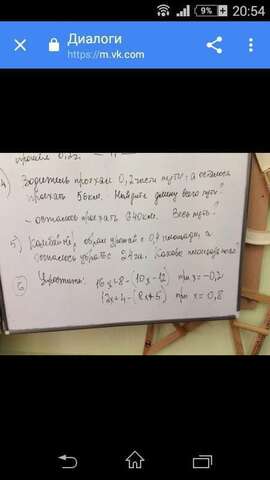 20:54
9%
Диалоги
https://m.vk.com
4) Водитель проехал 0,2 части пути, а осталось
проехать 56км. Найдите длину всего пути?
- осталось проехать 640км. Весь путь?
5) Комбайнёр убрал урожай с 0,4 площади, а
осталось убрать 24га. Какова площадь
6) Упростить:
16x+8-(10x-12) при x=-0,2
12x+4-(8x+5) при x=0,8